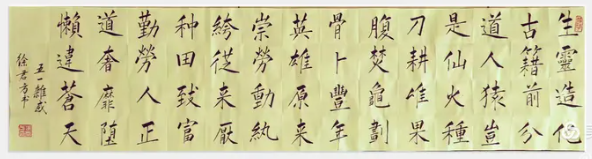 生靈造化
古籍前分
道人猿豈
是仙火種
刀耕果
腹焚龜劃
骨卜豐年
英雄原来
崇勞動紈
絝從来厭
种田致富
勤勞人正
道奢靡堕
懶違蒼天
五一雜感
徐君